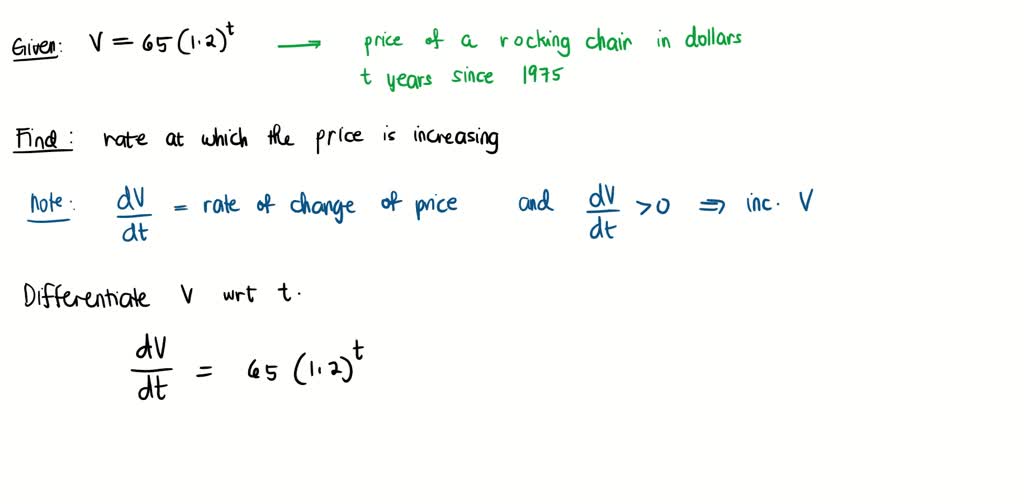 Given: V = 65(1.2)^t → price of a rocking chair in dollars
t years since 1975
Find: rate at which the price is increasing
Note: dV/dt = rate of change of price and dV/dt > 0 ⇒ inc. V
Differentiate V wrt t.
dV/dt = 65 (1.2)^t